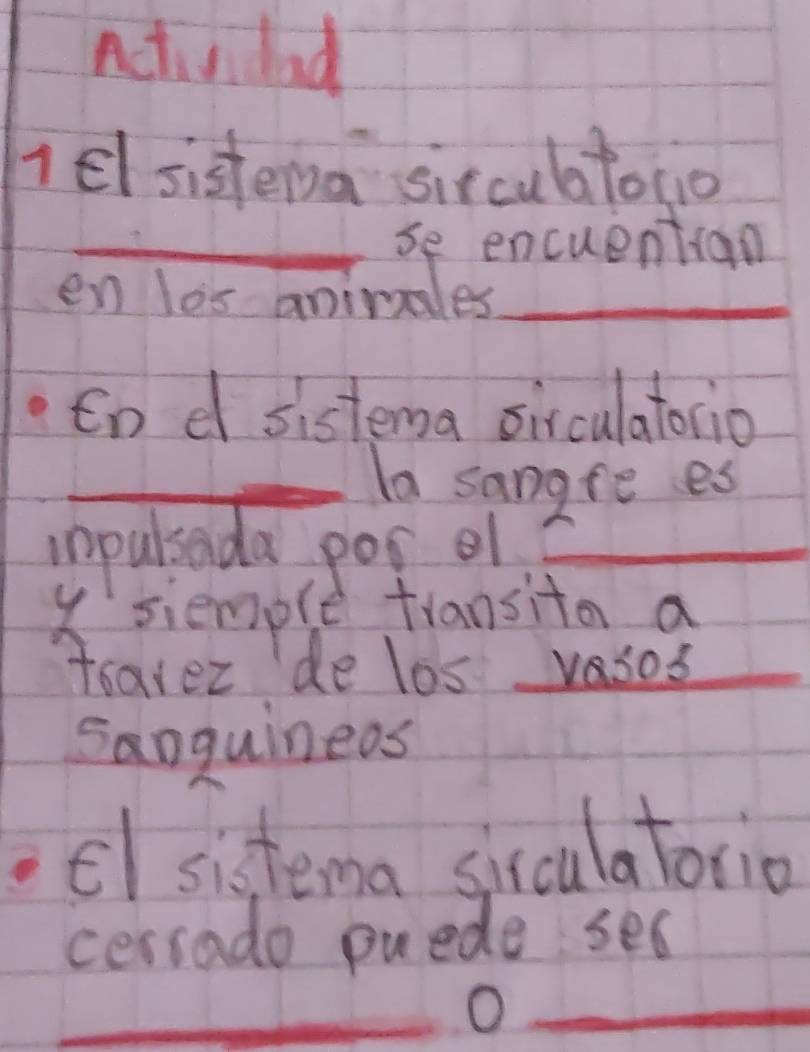 Actividad
1 El sistema sirculatorio
se encuentran
en los animales
• En el sistema sirculatorio
la sangre es
inpulsada por el
y siempre transita a
travez de los vasos
sanguineos
• El sistema sirculatorio
cerrado puede ser
o